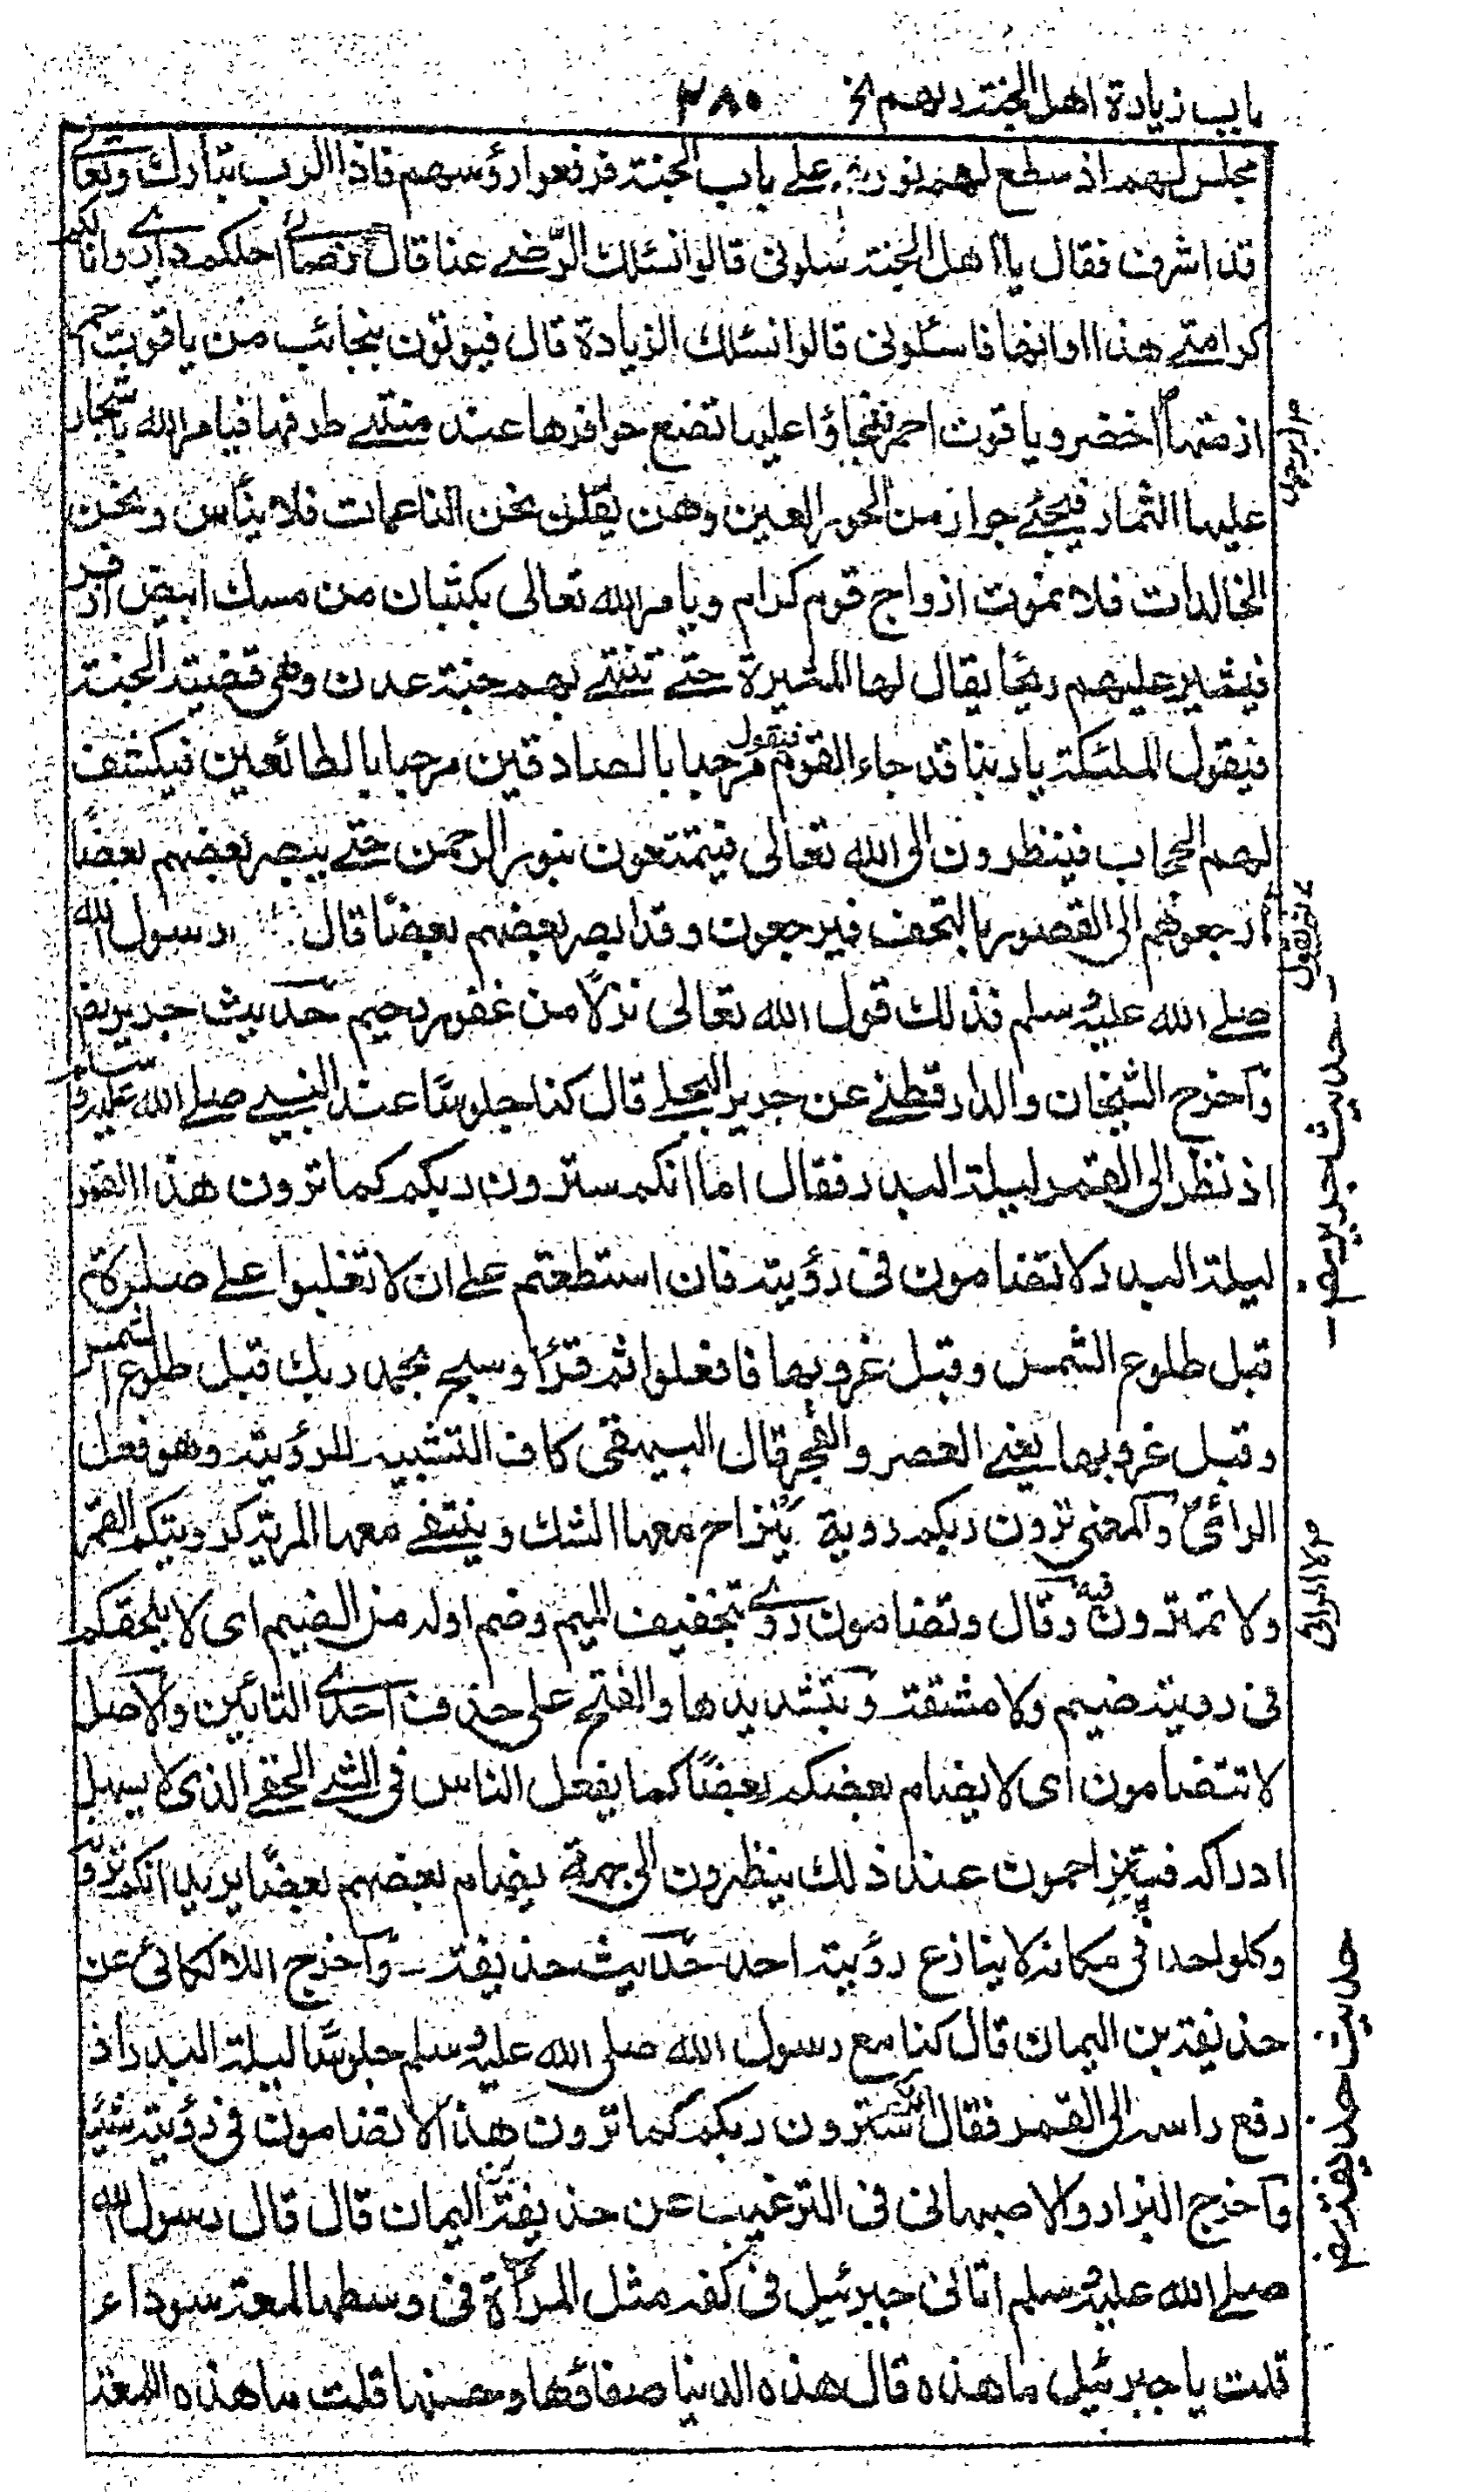 باب زيادة اهل الجنة ربهم الخ ٣٨٠
مجلس لهم اذ سطع لهم نور على باب الجنة فرفعوا رؤسهم فاذا الرب تبارك وتعالى
قد اشرف فقال يا اهل الجنة سلونى قالوا نسئلك الرّضى عنا قال رضائى احلكم دارى وانالكم
كرامتى هذا اوانها فاسئلونى قالوا نسئلك الزيادة قال فيوتون بنجائب من ياقوت احمر
ازمتها اخضر وياقوت احمر فجاؤا عليها تضع حوافرها عند منتهى طرفها فيامر الله باشجار
عليها الثمار فيجئ جوار من الحور العين وهن يقلن نحن الناعمات فلا ينأس ونحن
الخالدات فلا نموت ازواج قوم كرام ويامر الله تعالى بكثبان من مسك ابيض اذفر
فيثير عليهم ريحا يقال لها المثيرة حتى تنتهى بهم جنة عدن وهى قضية الجنة
فيقول الملئكة ياربنا قد جاء القوم فيقول مرحبا بالصادقين مرحبا بالطائعين فيكشف
لهم الحجاب فينظرون الى الله تعالى فيتمتعون بنور الرحمن حتى يبصر بعضهم بعضًا
ارجعوهم الى القصور بالتحف فيرجعون وقد ابصر بعضهم بعضًا قال رسول الله
صلى الله عليه وسلم فذلك قول الله تعالى نزلًا من غفور رحيم حديث جرير رض
وآخرج الشيخان والدارقطنى عن جرير البجلى قال كنا جلوسًا عند النبى صلى الله عليه وسلم
اذ نظر الى القمر ليلة البدر فقال اما انكم سترون ربكم كما ترون هذا القمر
ليلة البدر لا تضامون فى رؤيته فان استطعتم على ان لا تغلبوا على صلوة
قبل طلوع الشمس وقبل غروبها فافعلوا ثم قرأ وسبح بحمد ربك قبل طلوع الشمس
وقبل غروبها يعنى العصر والفجر قال البيهقى كاف التشبيه للرؤية وهو فعل
الرائى والمعنى ترون ربكم روية ينزاح معها الشك وينتفى معها المرية كرويتكم القمر
ولا تمترون فيه وقال وتضامون روى بتخفيف الميم وضم اوله من الضيم اى لا يلحقكم
فى روية ضيم ولا مشقة وبتشديدها والفتح على حذف احدى التائين والاصل
لا تتضامون اى لا يضام بعضكم بعضًا كما يفعل الناس فى الشئ الخفى الذى لا يسهل
ادراكه فيتزاحمون عند ذلك ينظرون الى جهة يضام بعضهم بعضًا يريد انكم ترونه
وكلواحد فى مكانه لا ينازع رؤيته احد حديث حذيفة - وآخرج اللالكائى عن
حذيفة بن اليمان قال كنا مع رسول الله صلى الله عليه وسلم جلوسًا ليلة البدر اذ
رفع راسه الى القمر فقال انكم سترون ربكم كما ترون هذا لا تضامون فى رؤيته شيئا
وآخرج البزار والاصبهانى فى الترغيب عن حذيفة بن اليمان قال قال رسول الله
صلى الله عليه وسلم اتانى جبرئيل فى كفه مثل المرآة فى وسطها لمعة سوداء
قلت يا جبرئيل ما هذه قال هذه الدنيا صفاؤها وحسنها قلت ما هذه اللمعة
ثم يقول
- حديث جرير رضم -
لا الرائى
حديث حذيفة رضم